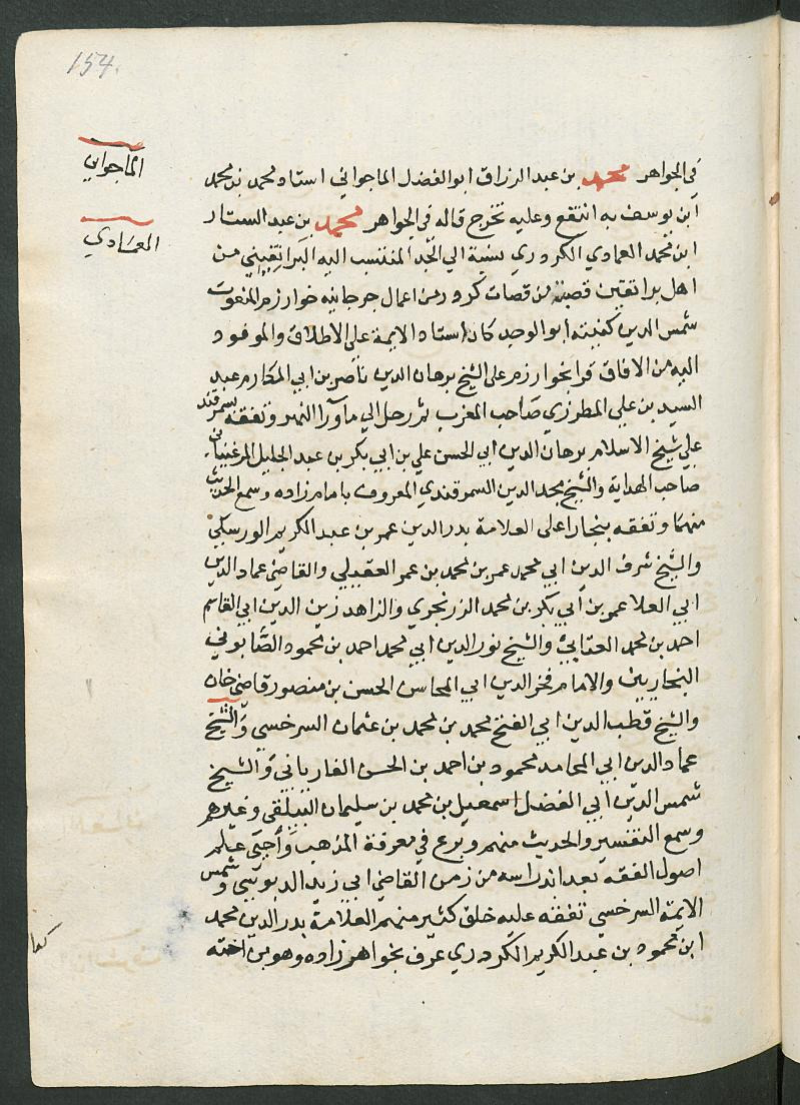 154.
الماجواني
العمادي
في الجواهر محمد بن عبد الرزاق ابو الفضل الماجواني استاد محمد بن محمد
ابن يوسف به انتفع وعليه تخرج قاله في الجواهر محمد بن عبد الستار
ابن محمد العمادي الكردري نسبة الي الجد المنتسب اليه البراتقيني من
اهل براتقين قصبة من قصات كردر من اعمال جرجانية خوارزم المنعوت
شمس الدين كنيته ابو الوحيد كان استاد الايمة علي الاطلاق والموفود
اليه من الافاق قرا بخوارزم علي الشيخ برهان الدين ناصر بن ابي المكارم عبد
السيد بن علي المطرزي صاحب المغرب ثم رحل الي ماورا النهر وتفقه بسمرقند
علي شيخ الاسلام برهان الدين ابي الحسن علي بن ابي بكر بن عبد الجليل المرغيناني
صاحب الهداية والشيخ مجد الدين السمرقندي المعروف بامام زاده وسمع الحديث
منهما وتفقه ببخارا علي العلامة بدر الدين عمر بن عبد الكريم الورسكي
والشيخ شرف الدين ابي محمد عمر بن محمد بن عمر العقيلي والقاضي عماد الدين
ابي العلا عمر بن ابي بكر بن محمد الزرنجري والزاهد زين الدين ابي القاسم
احد بن محمد العتابي والشيخ نور الدين ابي محمد احمد بن محمود الصابوني
البخاريين والامام فخر الدين ابي المحاسن الحسن بن منصور قاضي خان
والشيخ قطب الدين ابي الفتح محمد بن محمد بن عثمان السرخسي والشيخ
عماد الدين ابي المحامد محمود بن احمد بن الحسن الفاريابي والشيخ
شمس الدين ابي الفضل اسمعيل بن محمد بن سليمان البيلقي وغيرهم
وسمع التفسير والحديث منهم وبرع في معرفة المذهب واجيي علم
اصول الفقه بعد اندراسه من زمن القاضي ابي زيد الدبوسي وشمس
الايمة السرخسي تفقه عليه خلق كثير منهم العلامة بدر الدين محمد
ابن محمود بن عبد الكريم الكردري عرف بخواهر زاده وهو بن اخته